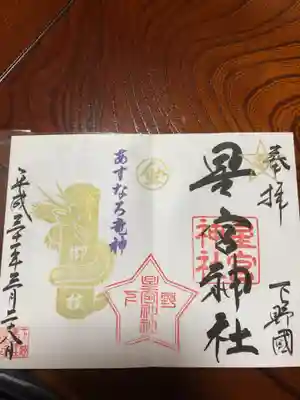 奉拝
下野國
星宮神社
星宮神社
あすなろ竜神
星宮神社
下野
平成三十年三月二十八日